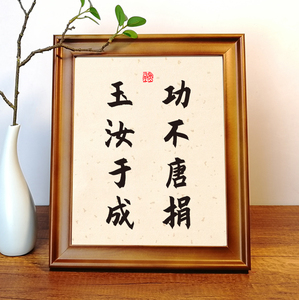 功不唐捐
玉汝于成